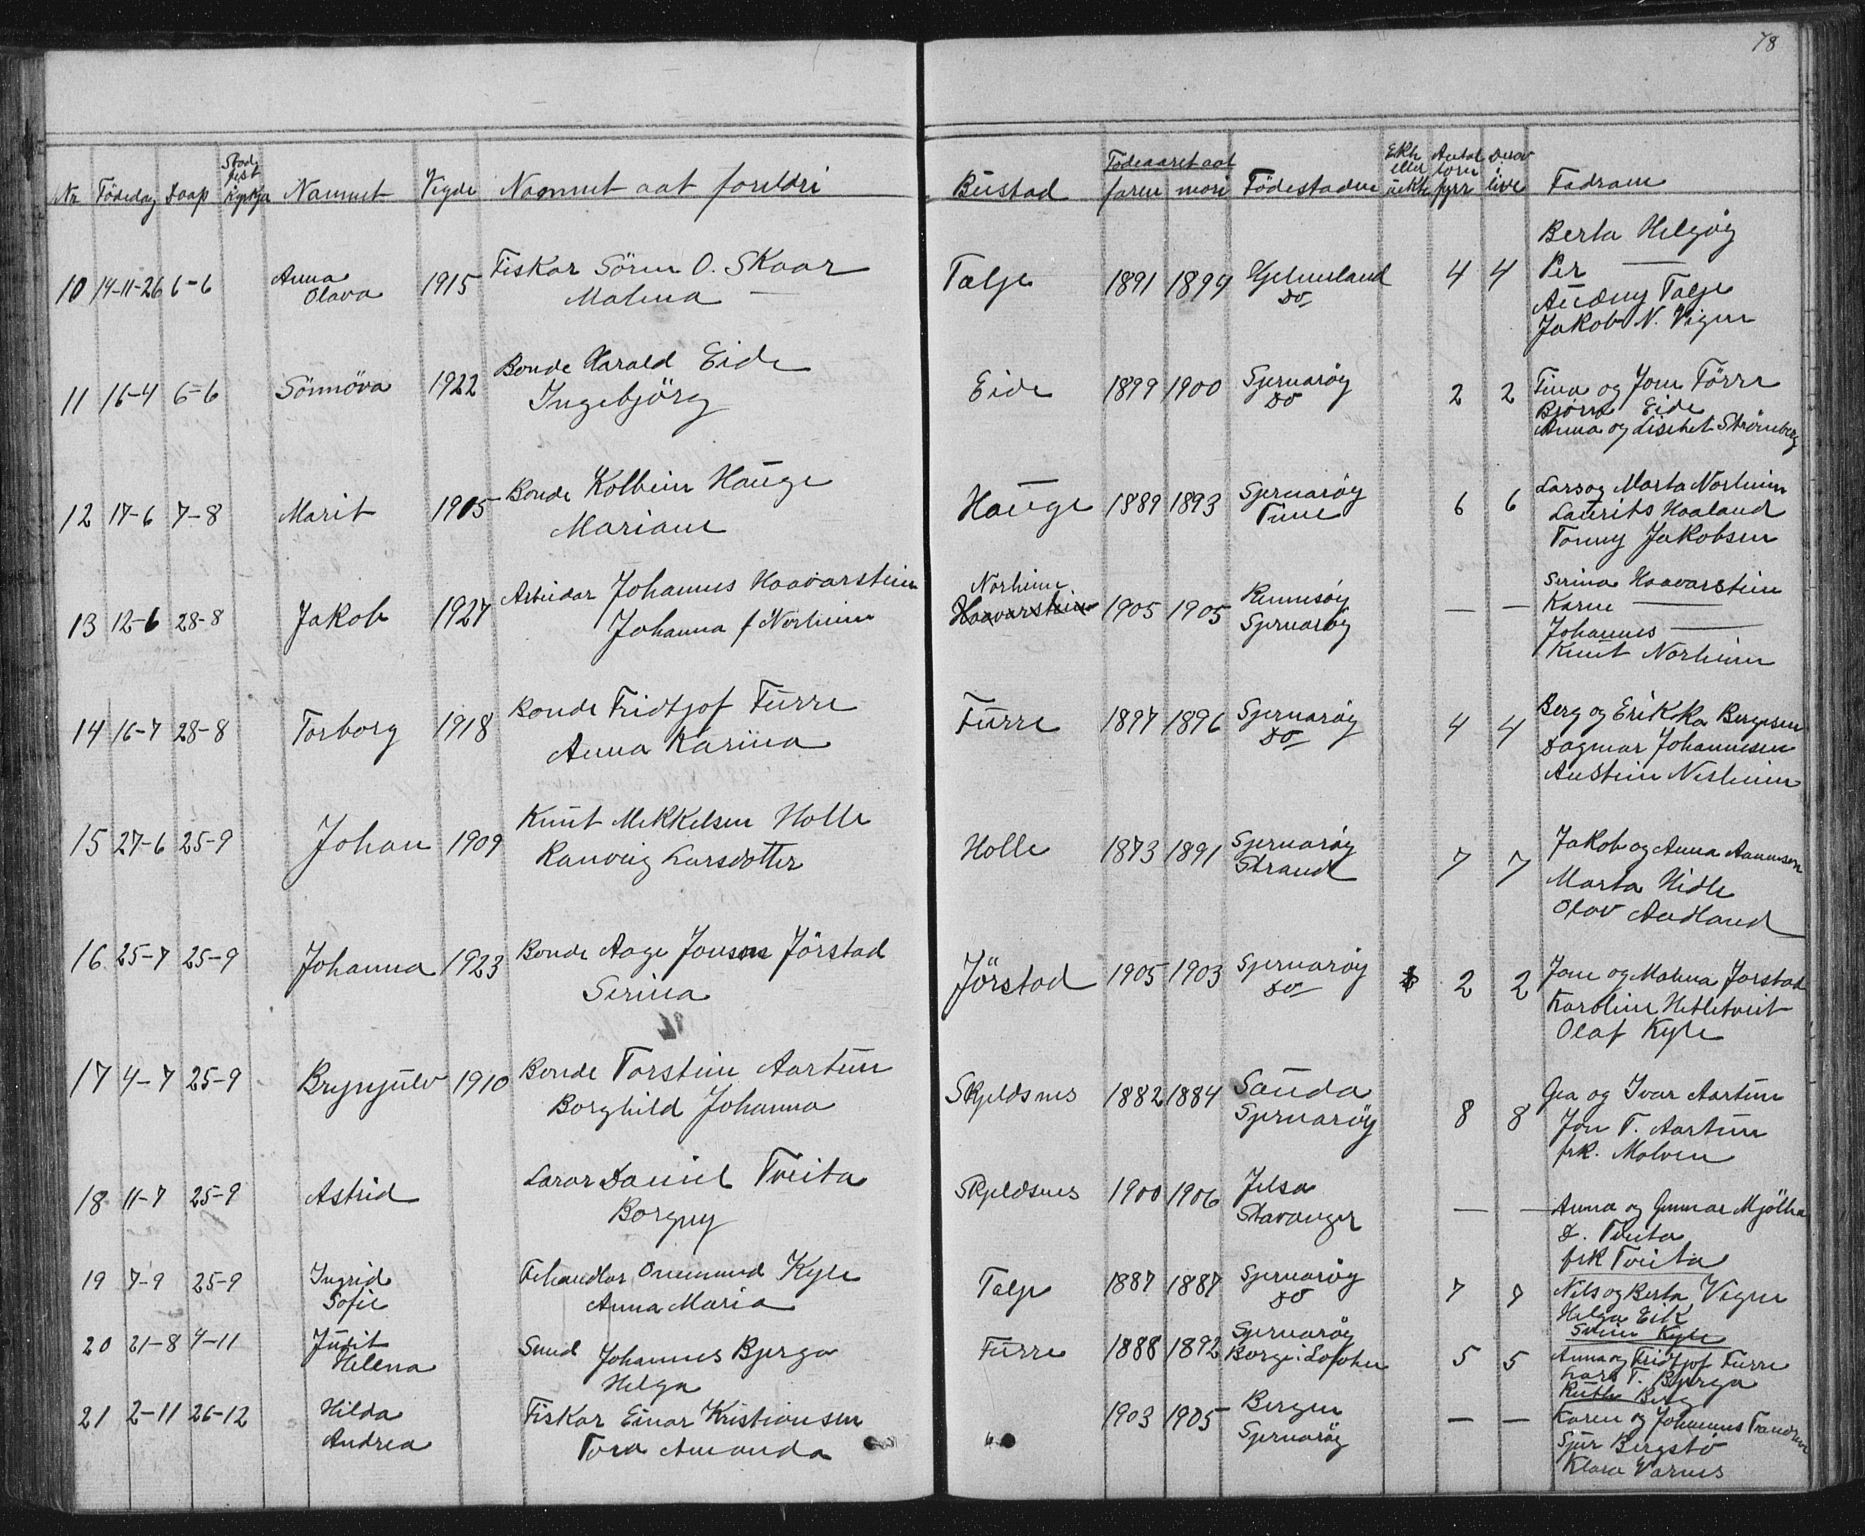 78
Nr Födedag Daap Stad-fest Kyrkja Namnet Vigde Namnet aat foreldri Bustad Fødeaaret aat faren mori Födestaden Ekh eller uekh Antal born fyrr Derav i live Fadrar
10 14-11-26 6-6 Anna Olava 1915 Fiskar Sören O. Skaar Malena — Talje 1891 1899 Hjelmeland Do 4 4 Berta Helgøy
Per —
Audeny Talje
Jakob N. Vigen
11 16-4 6-6 Sönnöva 1922 Bonde Harald Eide Ingebjörg Eide 1899 1900 Sjernaröy Do 2 2 Tina og Jone Förre
Björn Eide
Anna og Lisebet Strömberg
12 17-6 7-8 Marit 1915 Bonde Kolbein Hauge Mariane Hauge 1889 1893 Sjernaröy Time 6 6 Lars og Marta Norheim
Laurits Haaland
Tonny Jakobsen
13 12-6 28-8 Jakob 1927 Arbeidar Johannes Haavarstein Johanna f Norheim Norheim Haavarstein 1905 1905 Rennesöy Sjernaröy — — Serina Haavarstein
Karen —
Johannes —
Knut Norheim
14 16-7 28-8 Torborg 1918 Bonde Fridtjof Furre Anna Karina Furre 1897 1896 Sjernaröy Do 4 4 Berg og Erikka Bergesen
Dagmar Johannesen
Austein Nesheim
15 27-6 25-9 Johan 1909 Knut Mekkelsen Holle Ranveig Larsdotter Holle 1873 1891 Sjernaröy Strand 7 7 Jakob og Anna Aanensen
Marta Hidle
Olav Aadland
16 25-7 25-9 Johanna 1923 Bonde Aage Jonsen Jörstad Serina Jörstad 1905 1903 Sjernaröy Do 2 2 Jone og Malena Jorstad
Karoline Hetletveit
Olaf Kyle
17 4-7 25-9 Brynjulv 1910 Bonde Torstein Aartun Borghild Johanna Skjeldsnes 1882 1884 Sauda Sjernaröy 8 8 Gea og Ivar Aartun
Jon T. Aartun
frk. Malven
18 11-7 25-9 Astrid Lærar Daniel Tveita Borgny Skjeldsnes 1900 1906 Jelsa Stavanger — — Anna og Gunnar Mjölha
D. Tveita
frk Tveita
19 7-9 25-9 Ingrid Sofie Fehandlar Onemund Kyle Anna Maria Talje 1887 1887 Sjernaröy Do 7 7 Nils og Berta Vigen
Helga Eik
Svein Kyle
20 21-8 4-11 Judit Helena Smed Johannes Bjerga Helga Furre 1888 1892 Sjernaröy Borge i Lofoten 5 5 Anna og Fridtjof Furre
Lars T. Bjerga
Ruth Berg
21 2-11 26-12 Hilda Andrea Fiskar Einar Kristiansen Tora Amanda 1903 1905 Bergen Sjernaröy — — Karen og Johannes
Sjur Bergstö
Klara Varnes